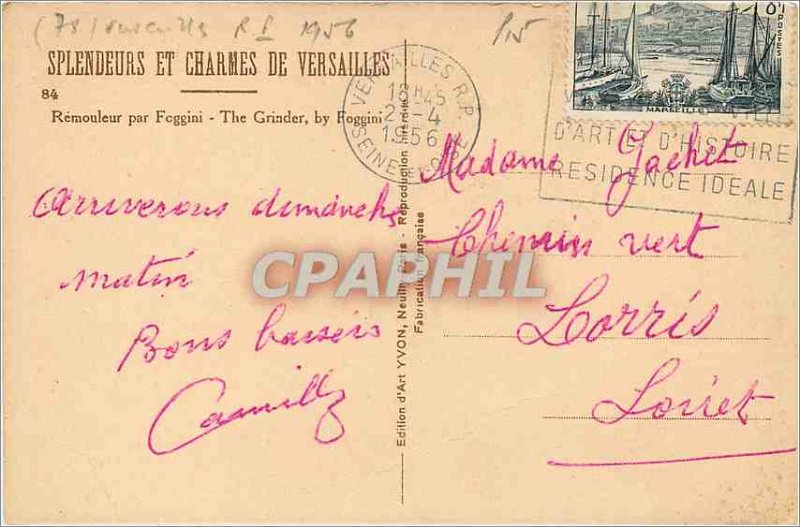 (78) Versailles R.P. 1956
SPLENDEURS ET CHARMES DE VERSAILLES
84
Rémouleur par Foggini - The Grinder, by Foggini
VERSAILLES R.P.
18H45
2-4
1956
SEINE ET OISE
POSTES
MARSEILLE
VILLE
D'ART ET D'HISTOIRE
RESIDENCE IDEALE
Arriverons dimanche
matin
Bons baisers
Camille
Edition d'Art YVON, Neuilly-Paris - Reproduction interdite
Fabrication française
Madame Gachet
Chemin vert
Lorris
Loiret
CPARHIL